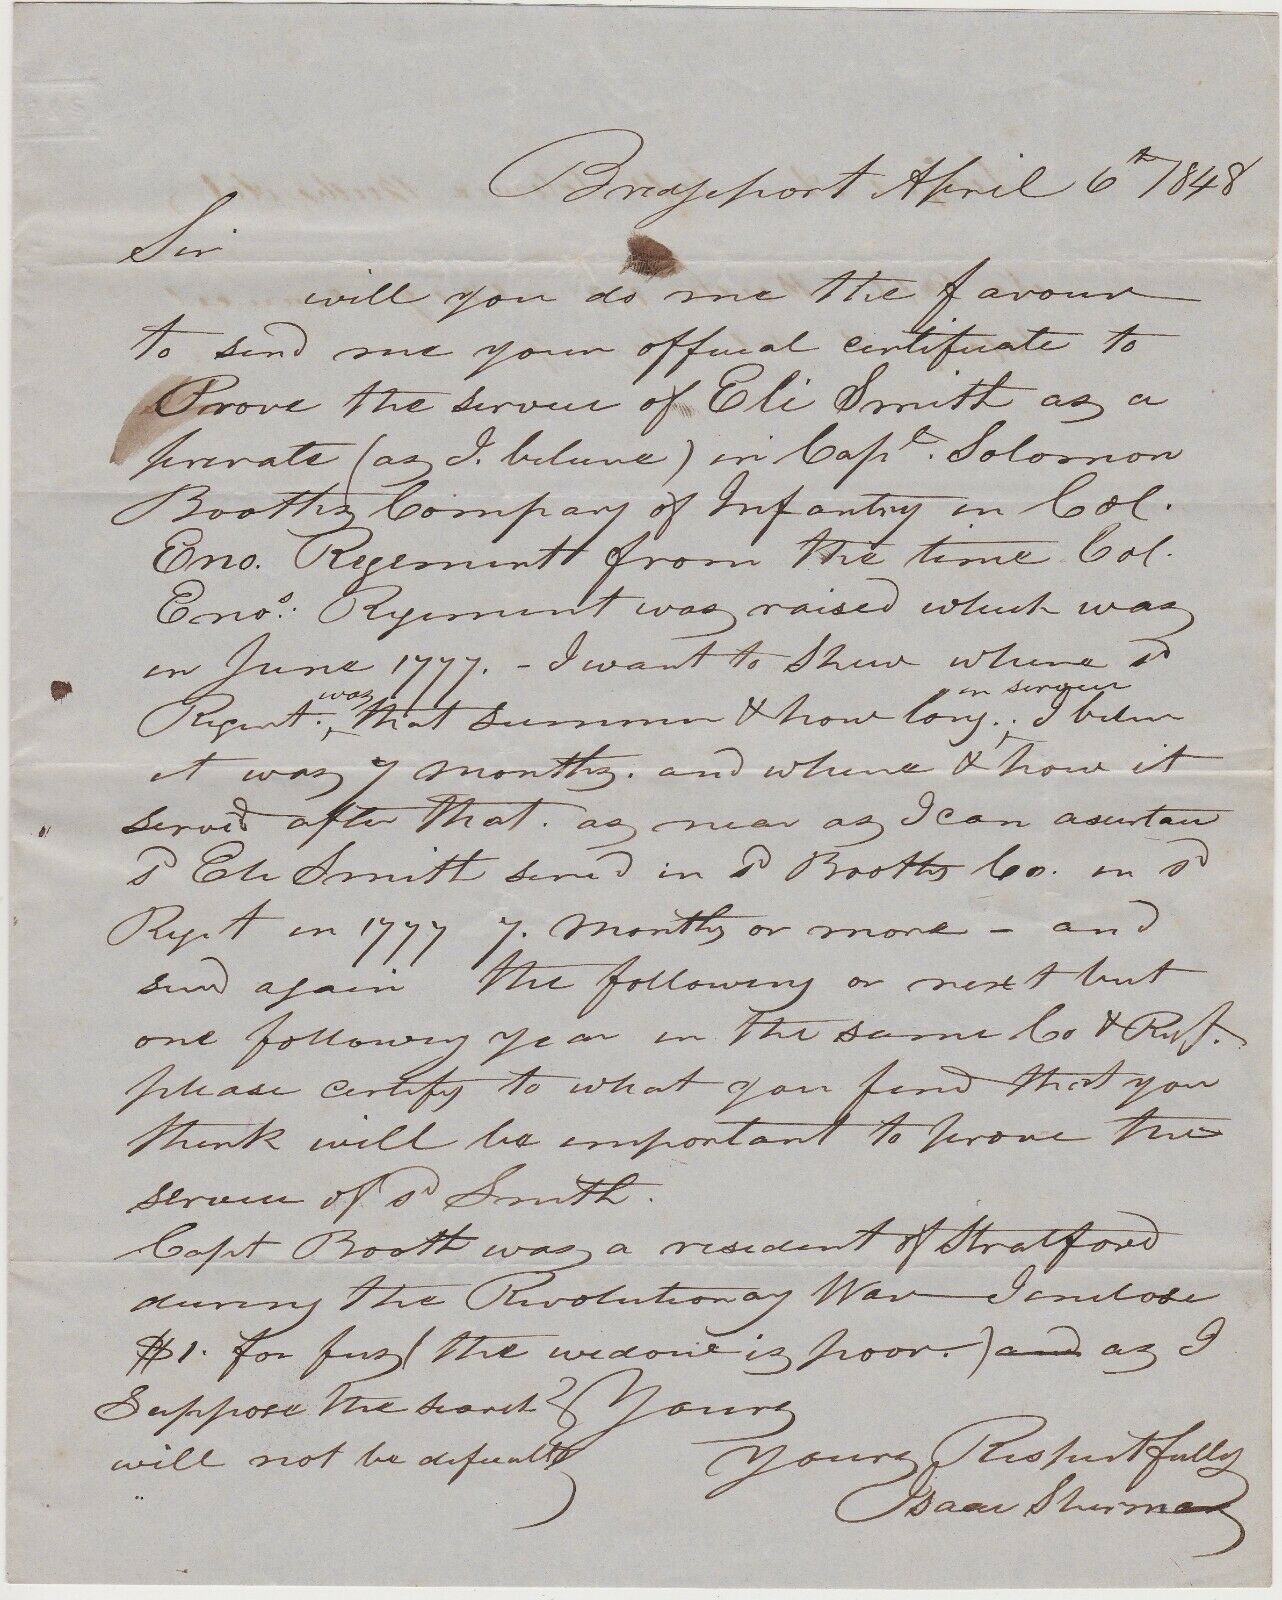 Bridgeport April 6th 1848
Sir
will you do me the favour
to send me your official certificate to
Prove the service of Eli Smith as a
private (as I. believe) in Capt. Solomon
Booths Company of Infantry in Col.
Eno. Regement from the time Col.
Enos: Regement was raised which was
in June 1777. - I want to Shew where sd
Regmt. was that summer & how long in service. I believe
it was 7 months. and where & how it
served after that. as near as I can asertain
sd Eli Smith served in sd Booths Co. in sd
Regt in 1777 7. months or more - and
served again the following or next but
one following year in the same Co & Regt.
please certify to what you find that you
think will be important to prove the
service of sd Smith.
Capt Booth was a resident of Stratford
during the Revolutionay War I enclose
$1. for fees (the widow is poor.) and as I
Suppose the search
will not be dificult
Yours
Yours Respectfully
Isaac Sherman